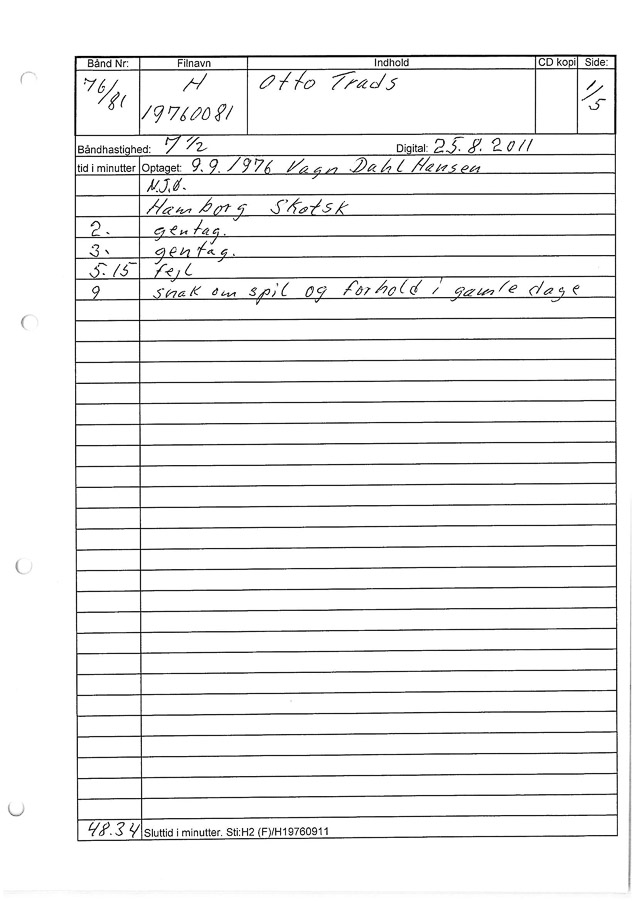 Bånd Nr: Filnavn Indhold CD kopi Side:
76/81 H 19760081 Otto Trads 1/5
Båndhastighed: 7 1/2 Digital: 25.8.2011
tid i minutter Optaget: 9.9.1976 Vagn Dahl Hansen
N.J.Ø.
Hamborg Skotsk
2. gentag.
3. gentag.
5.15 fejl
9 snak om spil og forhold i gamle dage
48.34 Sluttid i minutter. Sti:H2 (F)/H19760911